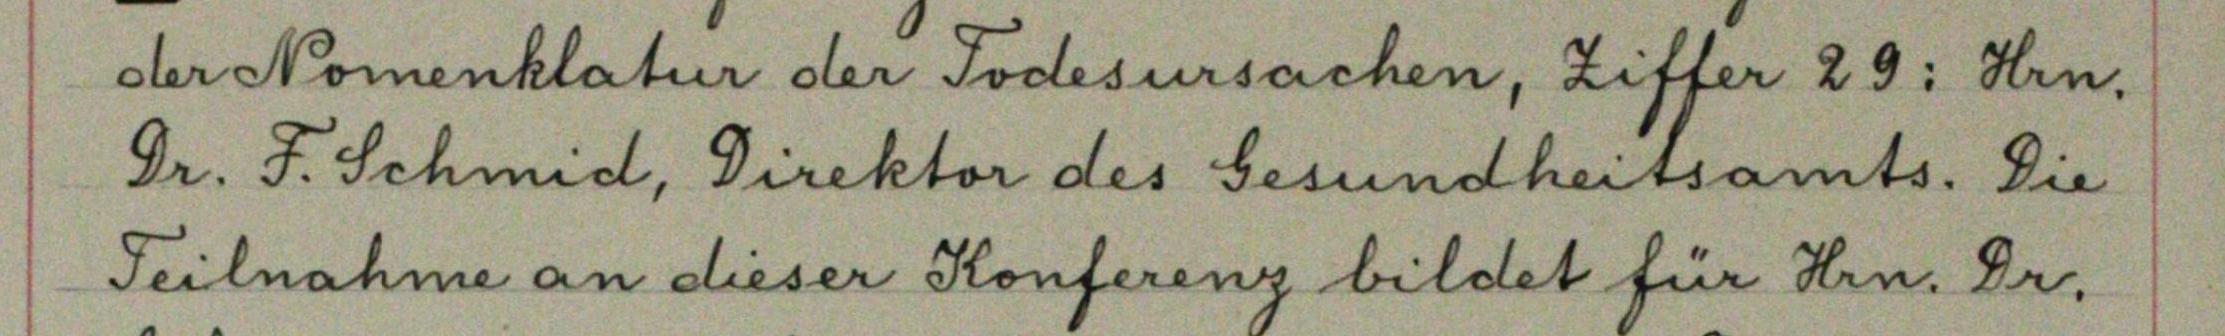 der Nomenklatur der Todesursachen, Ziffer 29: Hrn.
Dr. F. Schmid, Direktor des Gesundheitsamts. Die
Teilnahme an dieser Konferenz bildet für Hrn. Dr.